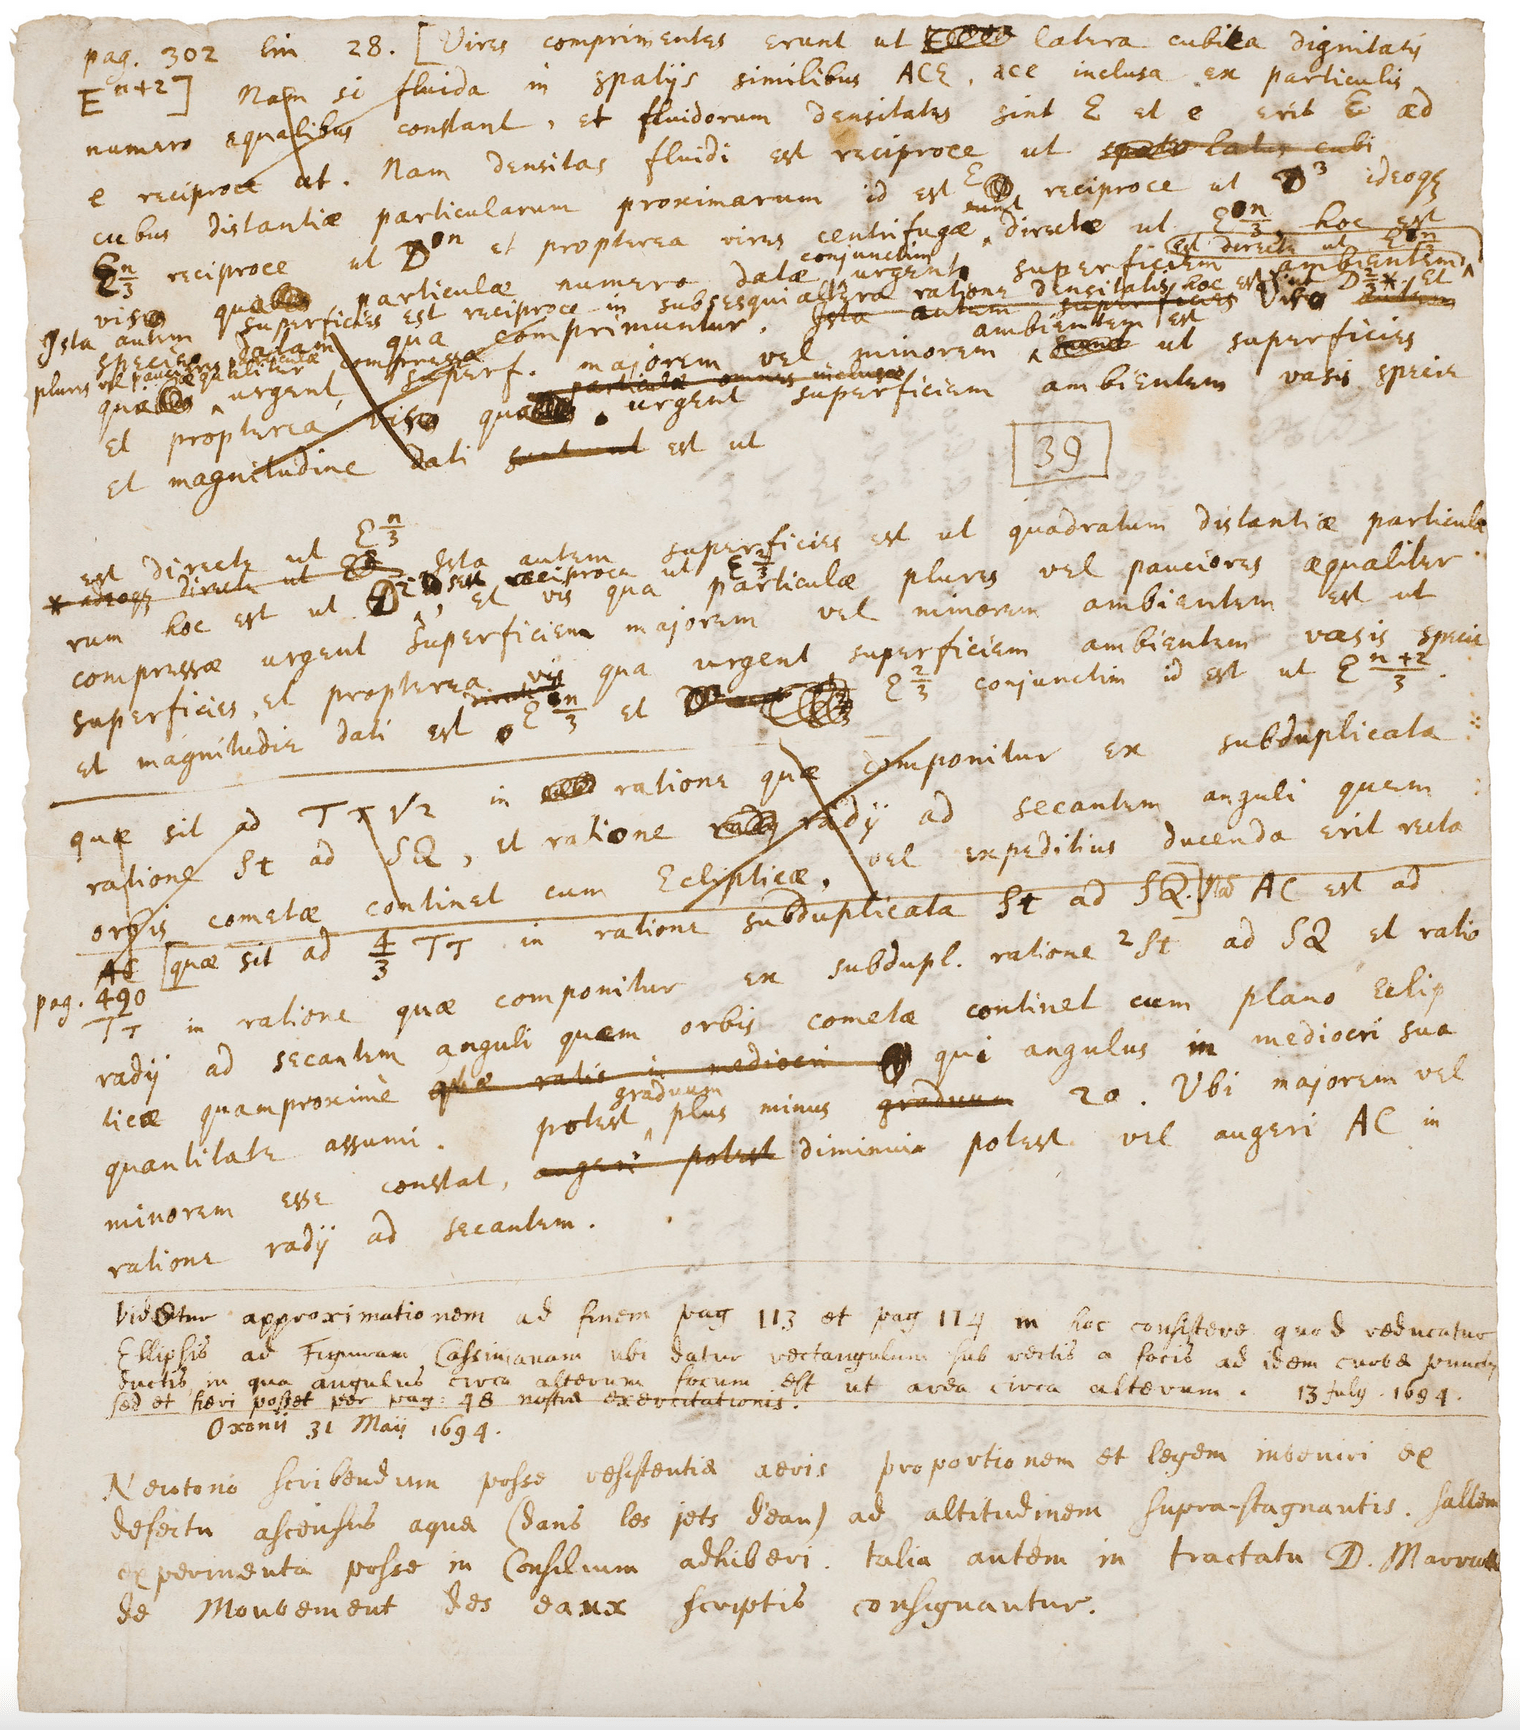 pag. 302 lin 28. [Vires comprimentes erunt ut latera cubica dignitatis
E^{n+2}] Nam si fluida in spatijs similibus ACE, ace inclusa ex particulis
numero æqualibus constant, et fluidorum densitates sint E et e erit E ad
e reciproce ut. Nam densitas fluidi est reciproce ut spatio latus cubi
cubus distantiæ particularum proximarum id est E reciproce ut D^3 ideoqȝ
E^{n/3} reciproce ut D^n et propterea vires centrifugæ sunt directe ut E^{n/3} hoc est
est directe ut E^{n/3}
vis qua particulæ numero datæ conjunctim urgent superficiem ambientem
Ista autem superficies est reciproce in subsesquialtera ratione densitatis hoc est ut D^2 * et
specie datam qua comprimuntur. Ista autem superficies vis autem
plures vel pauciores particulæ æqualiter compressæ
qua urgent superf. majorem vel minorem ambientem est ut superficies
particulæ omnes inclusæ
et propterea vis qua urgent superficiem ambientem vasis specie
et magnitudine dati sunt ut est ut
39
est directe ut E^{n/3}
* adeoqȝ directe ut Ista autem superficies est ut quadratum distantiæ particula
rum hoc est ut D^2 id est reciproce ut E^{2/3}, et vis qua particulæ plures vel pauciores æqualiter
compressæ urgent superficiem majorem vel minorem ambientem est ut
superficies, et propterea vis qua urgent superficiem ambientem vasis specie
et magnitudie dati est E^{n/3} et E^{2/3} conjunctim id est ut E^{n+2/3}.
quæ sit ad Tτ√2 in ratione quæ componitur ex subduplicata
ratione St ad SQ, et ratione radij ad secantem anguli quem
orbis cometæ continet cum Eclipticæ, vel expeditius ducenda erit recta
AC [quæ sit ad 4/3 Tτ in ratione subduplicata St ad SQ.] Nam AC est ad
pag. 490
Tτ in ratione quæ componitur ex subdupl. ratione 2St ad SQ et ratio
radij ad secantem anguli quem orbis cometæ continet cum plano Eclip
ticæ quamproximè quæ ratio in mediocri qui angulus in mediocri sua
quantitate assumi potest graduum plus minus graduum 20. Ubi majorem vel
minorem esse constat, augeri potest diminui potest vel augeri AC in
ratione radij ad secantem.
Videtur approximationem ad finem pag 113 et pag 114 in hoc consistere quod reducatur
Ellipsis ad Figuram Cassinianam ubi datur rectangulum sub rectis a focis ad idem curvæ punctum
ductis, in qua angulus circa alterum focum est ut area circa alterum. 13 July. 1694.
sed et fieri posset per pag: 48 nostræ exercitationis.
Oxonii 31 Maij 1694.
Newtono scribendum posse resistentiæ aeris proportionem et legem inveniri ex
defectu ascensus aquæ (dans les jets d'eau) ad altitudinem supra-stagnantis. saltem
experimenta posse in Consilium adhiberi. talia autem in tractatu D. Marriotte
de Mouvement des eaux scriptis consignantur.